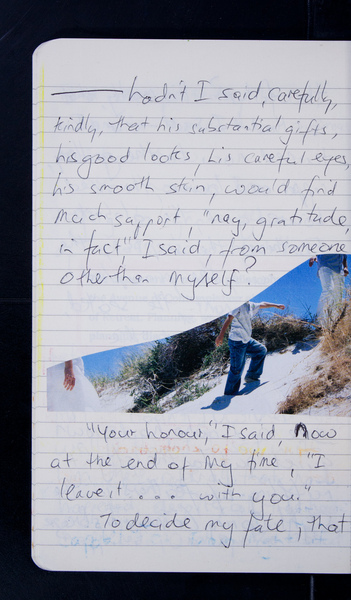 ——— hadn't I said, carefully,
kindly, that his substantial gifts,
his good looks, his careful eyes,
his smooth skin, would find
much support, "nay, gratitude,
in fact" I said, from someone
other than myself?
"Your honour," I said, Now
at the end of my time, "I
leave it . . . with you."
To decide my fate, that